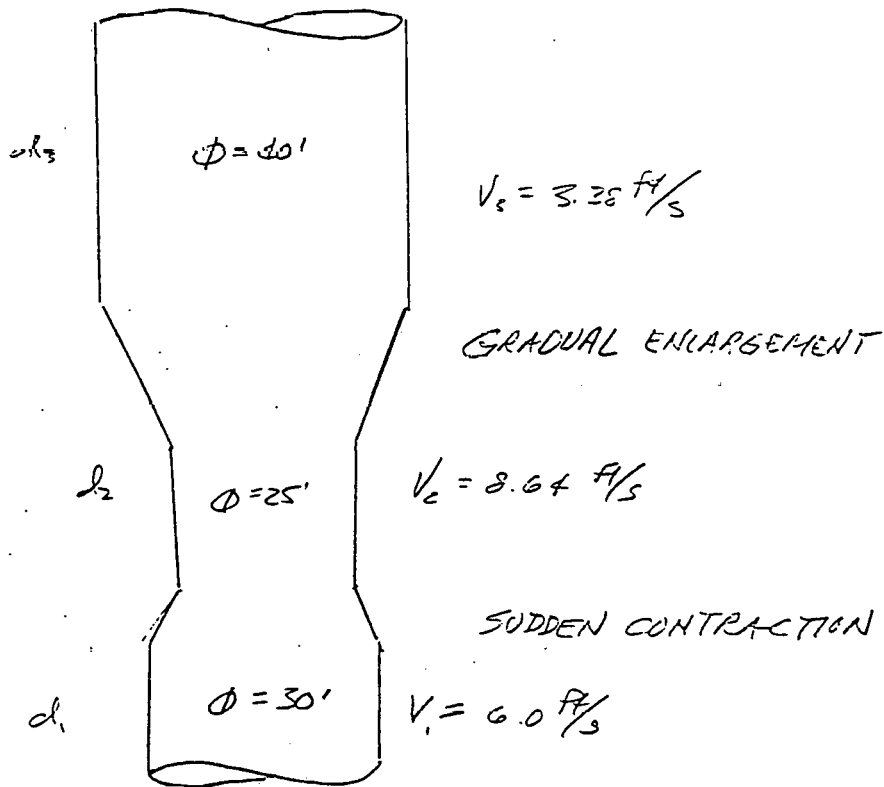 d₃ Φ = 40' V₃ = 3.38 ft/s
GRADUAL ENLARGEMENT
d₂ Φ = 25' V₂ = 8.64 ft/s
SUDDEN CONTRACTION
d₁ Φ = 30' V₁ = 6.0 ft/s